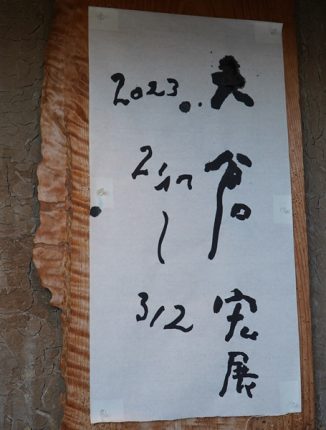 大谷宏展
2023.
2/17
〜
3/12